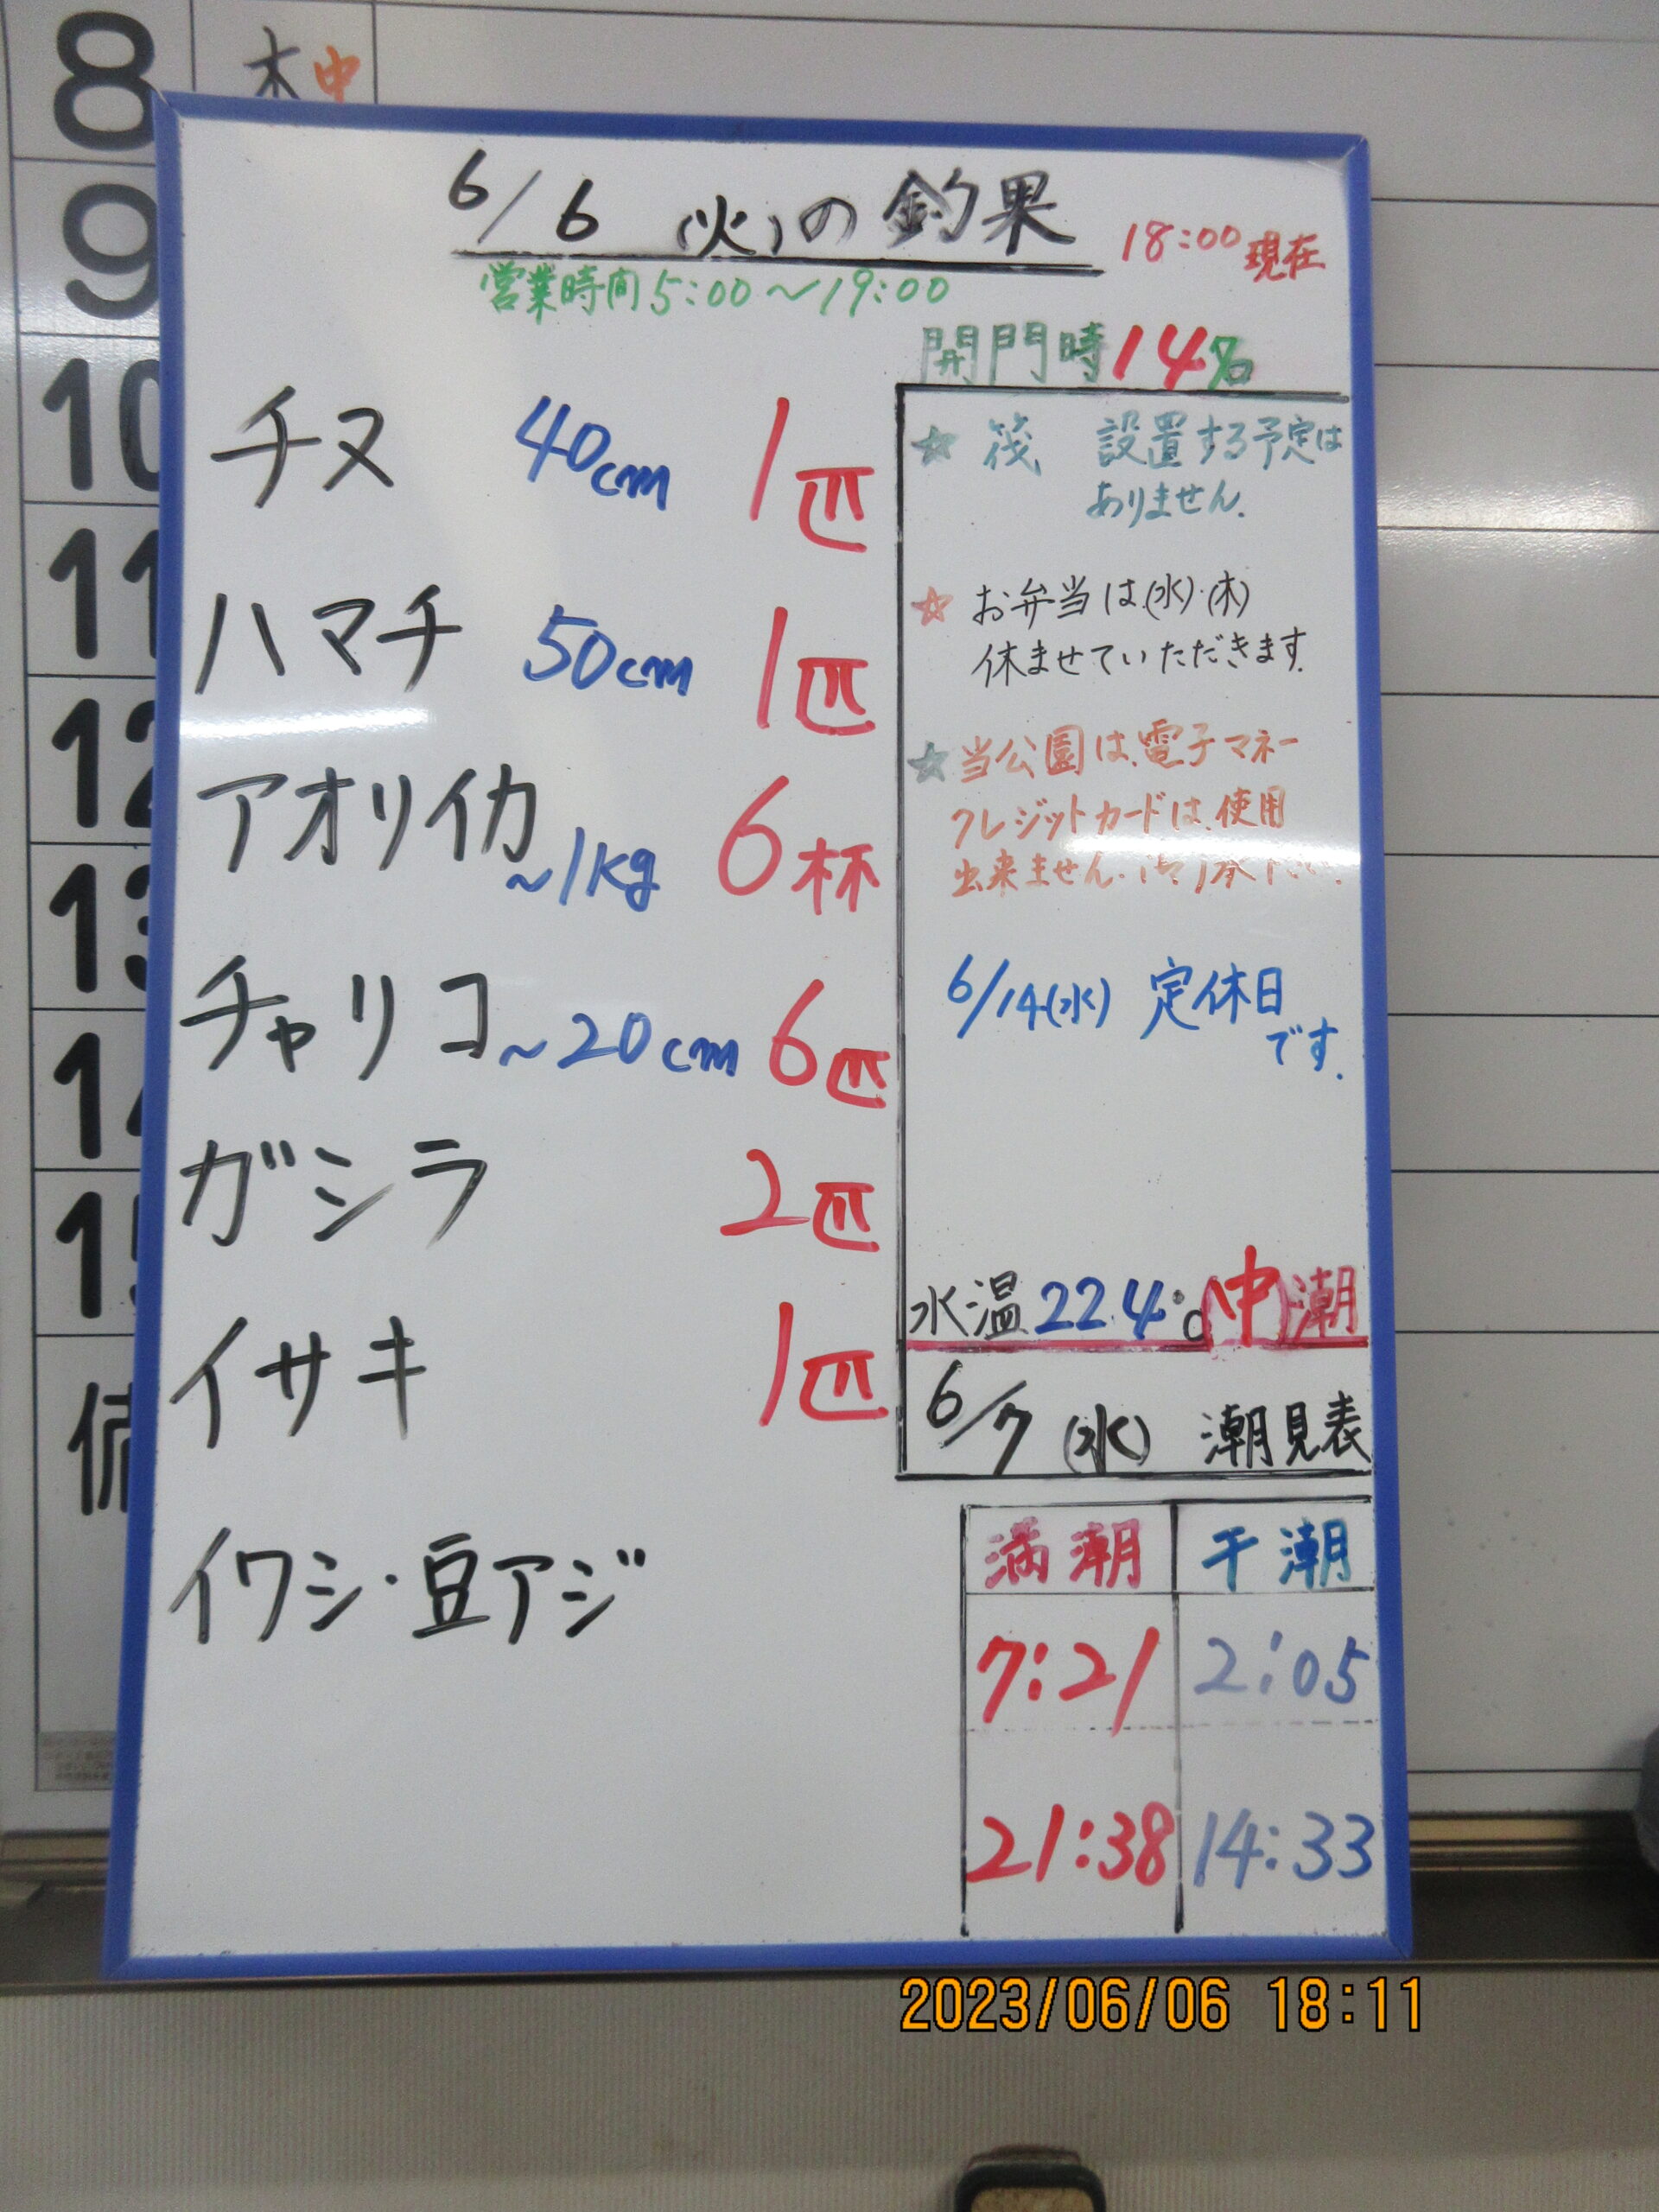 8 木 中
9
10
11
12
13
14
15
備
6/6 (火)の釣果
18:00現在
営業時間 5:00〜19:00
開門時14名
チヌ 40cm 1匹
ハマチ 50cm 1匹
アオリイカ ~1kg 6杯
チャリコ ~20cm 6匹
ガシラ 2匹
イサキ 1匹
イワシ・豆アジ
☆ 筏 設置する予定は
ありません.
☆ お弁当は(水)・(木)
休ませていただきます.
☆当公園は、電子マネー
クレジットカードは、使用
出来ません.
6/14(水) 定休日
です.
水温22.4℃(中)潮
6/7 (水) 潮見表
満潮 干潮
7:21 2:05
21:38 14:33
2023/06/06 18:11